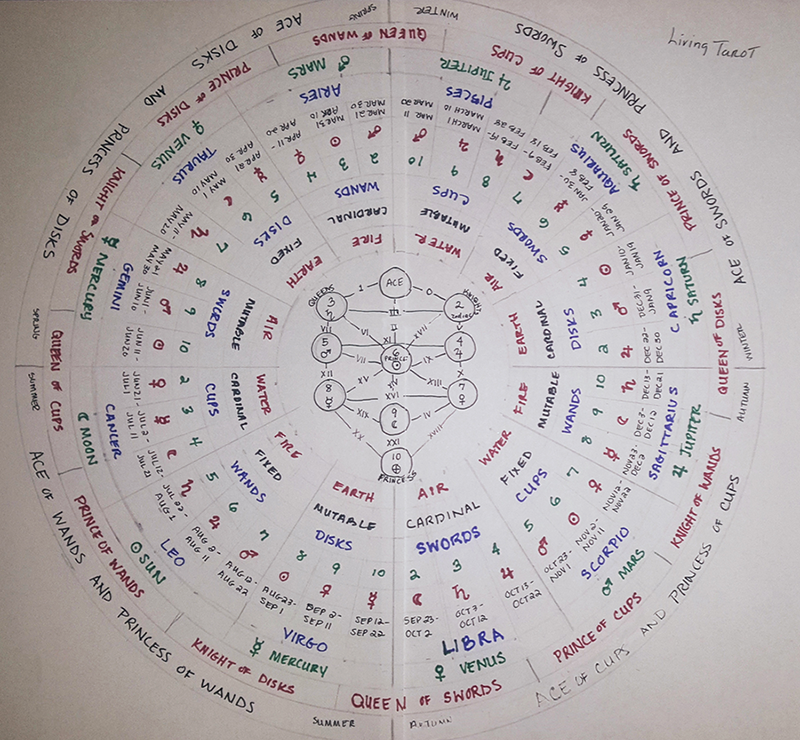 Living Tarot
SPRING
WINTER
AUTUMN
SUMMER
ACE OF SWORDS AND PRINCESS OF SWORDS
ACE OF CUPS AND PRINCESS OF CUPS
ACE OF WANDS AND PRINCESS OF WANDS
ACE OF DISKS AND PRINCESS OF DISKS
QUEEN OF WANDS
♂ MARS
ARIES
MAR 21 MAR 30
MAR 31 APR 10
APR 11- APR 20
♂ ☉ ♀
2 3 4
WANDS
CARDINAL
FIRE
PRINCE OF DISKS
♀ VENUS
TAURUS
APR 21 APR 30
MAY 1 MAY 10
MAY 11- MAY 20
☿ ☾ ♄
5 6 7
DISKS
FIXED
EARTH
KNIGHT OF SWORDS
☿ MERCURY
GEMINI
MAY 21- MAY 30
JUN 1- JUN 10
JUN 11- JUN 20
♃ ♂ ☉
8 9 10
SWORDS
MUTABLE
AIR
QUEEN OF CUPS
☾ MOON
CANCER
JUN 21- JUL 1
JUL 2- JUL 11
JUL 12- JUL 21
♀ ☿ ☾
2 3 4
CUPS
CARDINAL
WATER
PRINCE OF WANDS
☉ SUN
LEO
JUL 22- AUG 1
AUG 2- AUG 11
AUG 12- AUG 22
♄ ♃ ♂
5 6 7
WANDS
FIXED
FIRE
KNIGHT OF DISKS
☿ MERCURY
VIRGO
AUG 23- SEP 1
SEP 2- SEP 11
SEP 12- SEP 22
☉ ♀ ☿
8 9 10
DISKS
MUTABLE
EARTH
QUEEN OF SWORDS
♀ VENUS
LIBRA
SEP 23- OCT 2
OCT 3- OCT 12
OCT 13- OCT 22
☾ ♄ ♃
2 3 4
SWORDS
CARDINAL
AIR
PRINCE OF CUPS
♂ MARS
SCORPIO
OCT 23- NOV 1
NOV 2- NOV 11
NOV 12- NOV 22
♂ ☉ ♀
5 6 7
CUPS
FIXED
WATER
KNIGHT OF WANDS
♃ JUPITER
SAGITTARIUS
NOV 23- DEC 2
DEC 3- DEC 12
DEC 13- DEC 21
☿ ☾ ♄
8 9 10
WANDS
MUTABLE
FIRE
QUEEN OF DISKS
♄ SATURN
CAPRICORN
DEC 22- DEC 30
DEC 31- JAN 9
JAN 10- JAN 19
♃ ♂ ☉
2 3 4
DISKS
CARDINAL
EARTH
PRINCE OF SWORDS
♄ SATURN
AQUARIUS
JAN 20- JAN 29
JAN 30 FEB 8
FEB 9- FEB 18
♀ ☿ ☾
5 6 7
SWORDS
FIXED
AIR
KNIGHT OF CUPS
♃ JUPITER
PISCES
FEB 19- FEB 28
MARCH 1 MARCH 10
MAR 11 MAR 20
♄ ♃ ♂
8 9 10
CUPS
MUTABLE
WATER
ACE
1 0
QUEENS 3 ♄
KNIGHTS 2 ZODIAC
III
II
V VI XVII
5 ♂
4 ♃
XI
6 PRINCE ☉
VII IX
XII X
XV XIII
8 ☿
7 ♀
XIX IV
9 ☾
XX XXI XVIII
10 ⊕
PRINCESS